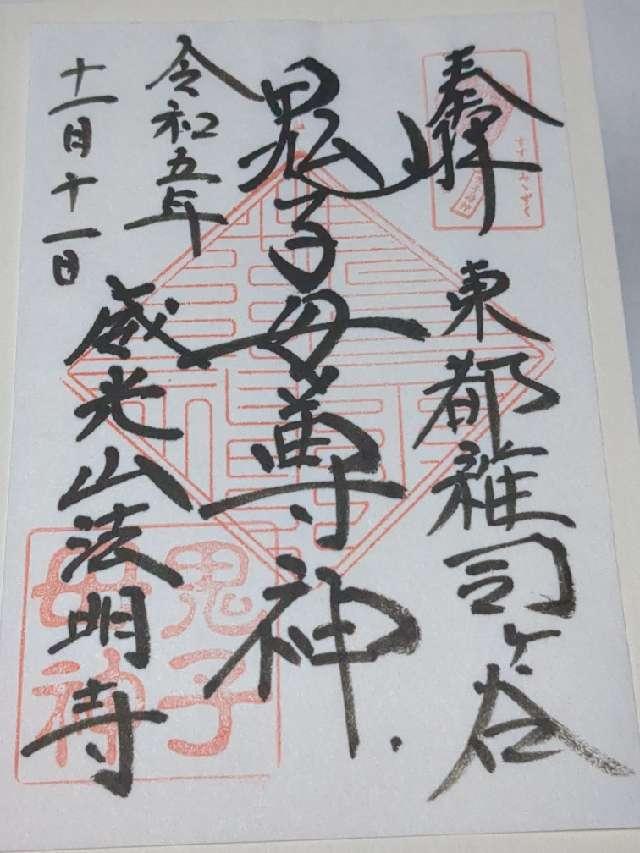 奉拝
東都雑司ヶ谷
鬼子母尊神
威光山法明寺
令和五年
十一月十一日
鬼子
母神